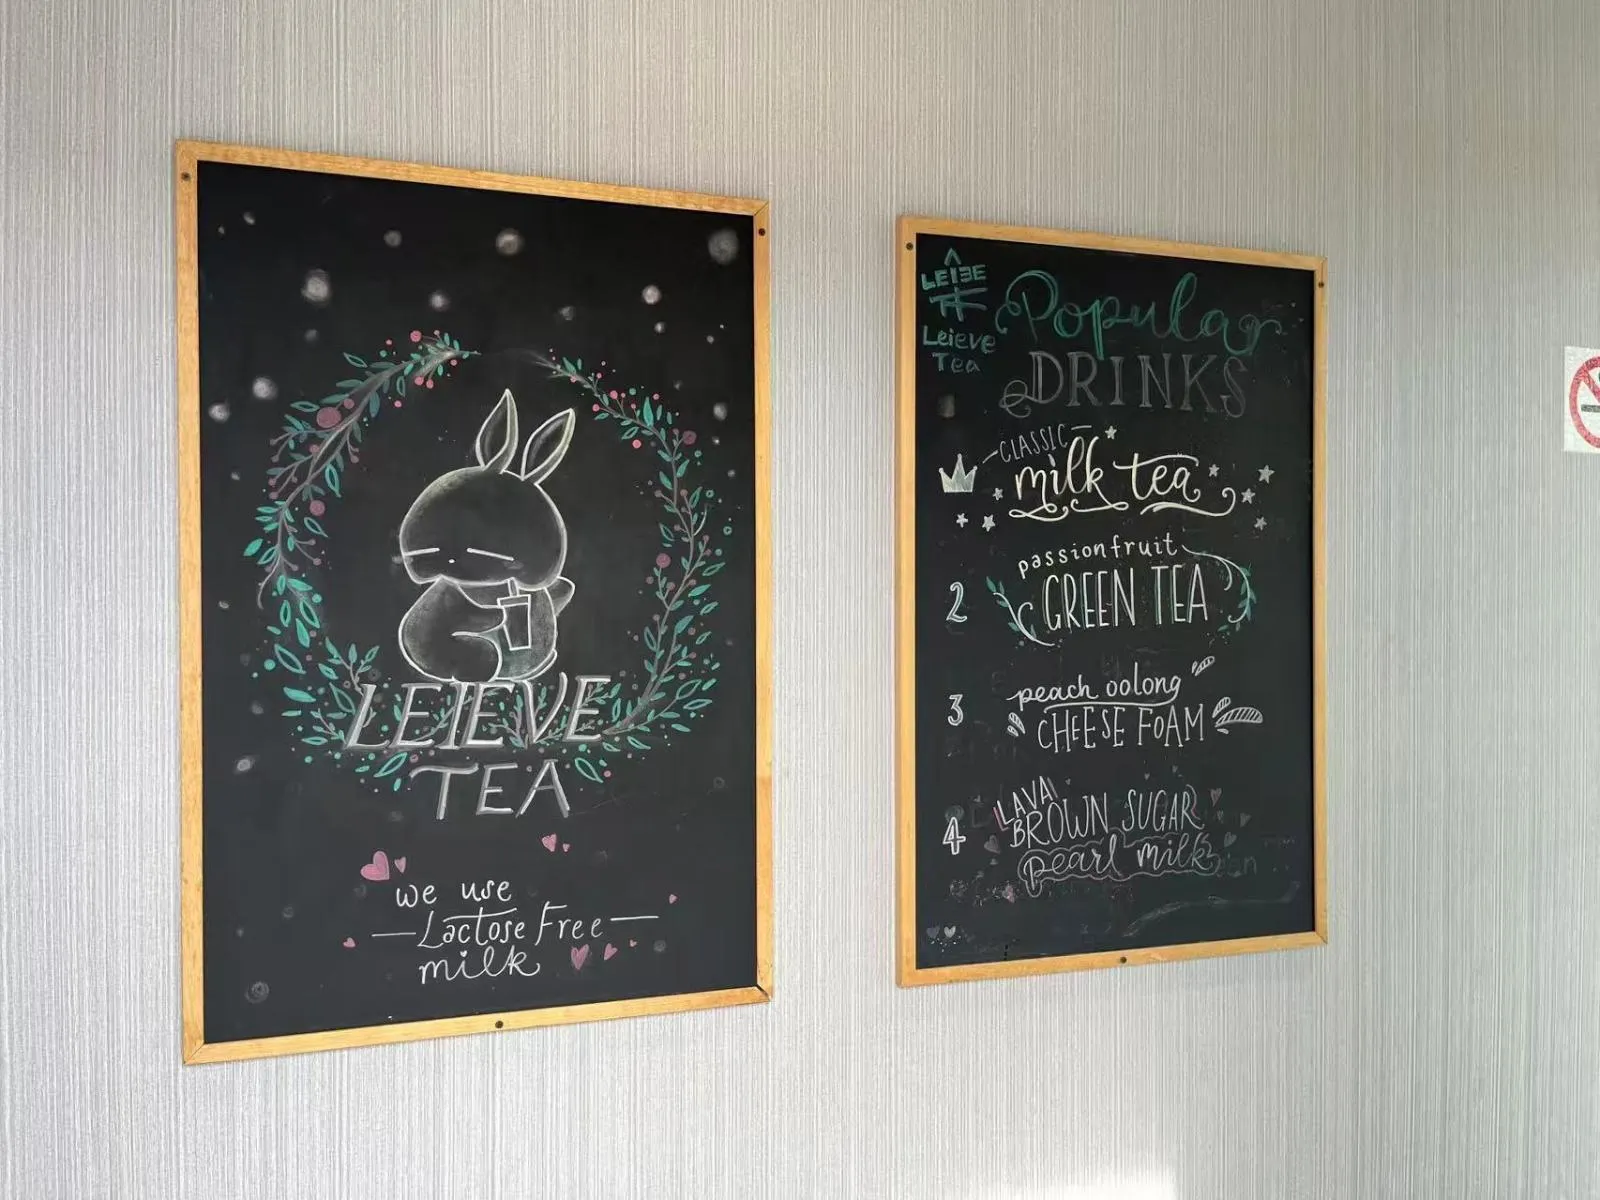 LEIEVE
TEA
we use
Lactose Free
milk
Leieve
Tea
Popular
DRINKS
CLASSIC
milk tea
passionfruit
2 GREEN TEA
peach oolong
3 CHEESE FOAM
LAVA
4 BROWN SUGAR
pearl milk